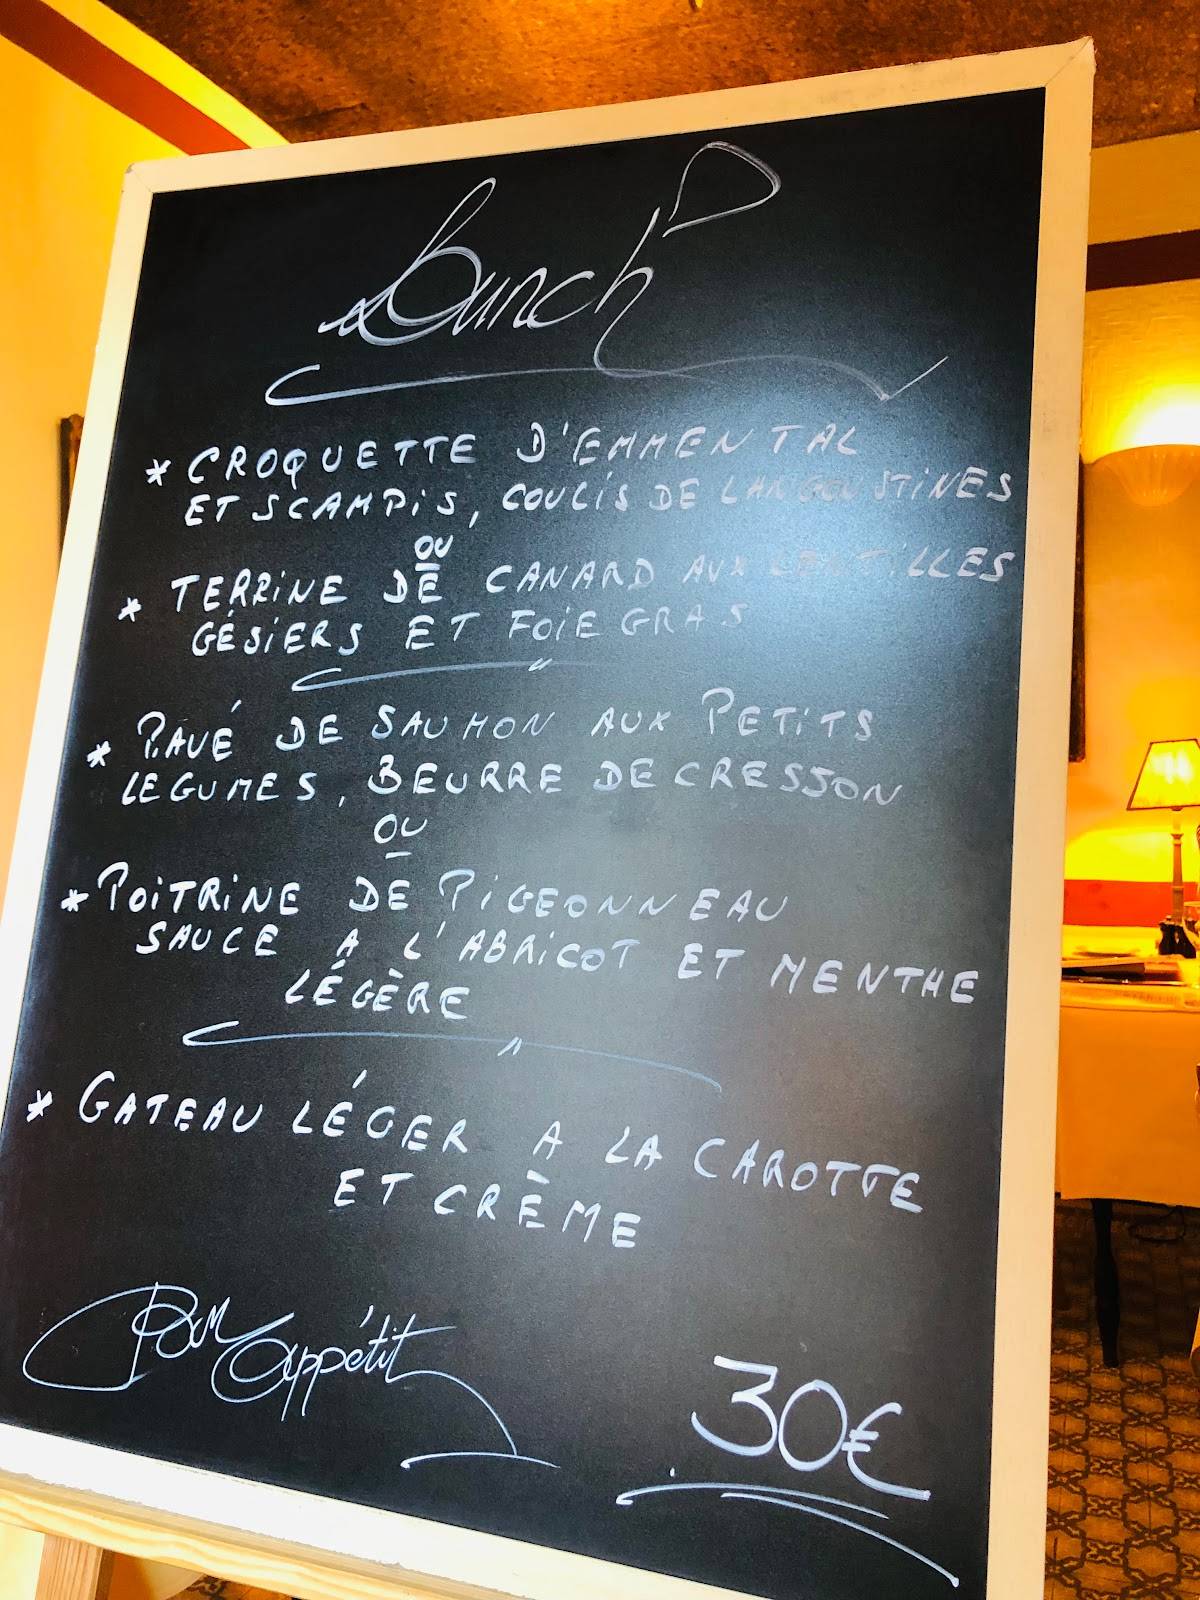 Lunch
* CROQUETTE D'EMMENTAL
ET SCAMPIS, COULIS DE LANGOUSTINES
OU
* TERRINE DE CANARD AUX LENTILLES
GÉSIERS ET FOIE GRAS
* PAVÉ DE SAUMON AUX PETITS
LEGUMES, BEURRE DE CRESSON
OU
* POITRINE DE PIGEONNEAU
SAUCE A L'ABRICOT ET MENTHE
LÉGÈRE
* GATEAU LÉGER A LA CAROTTE
ET CRÈME
Bon appétit
30€